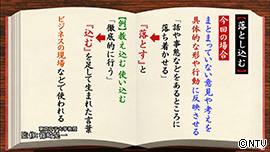 【落とし込む】
今回の場合
まとまっていない意見や考えを
具体的な形や行動に反映させる
「話や事態などをあるところに
落ち着かせる」
『落とす』と
【例】教え込む 使い込む
「徹底的に行う」
『込む』を足して生まれた言葉
ビジネスの現場などで使われる
©NTV